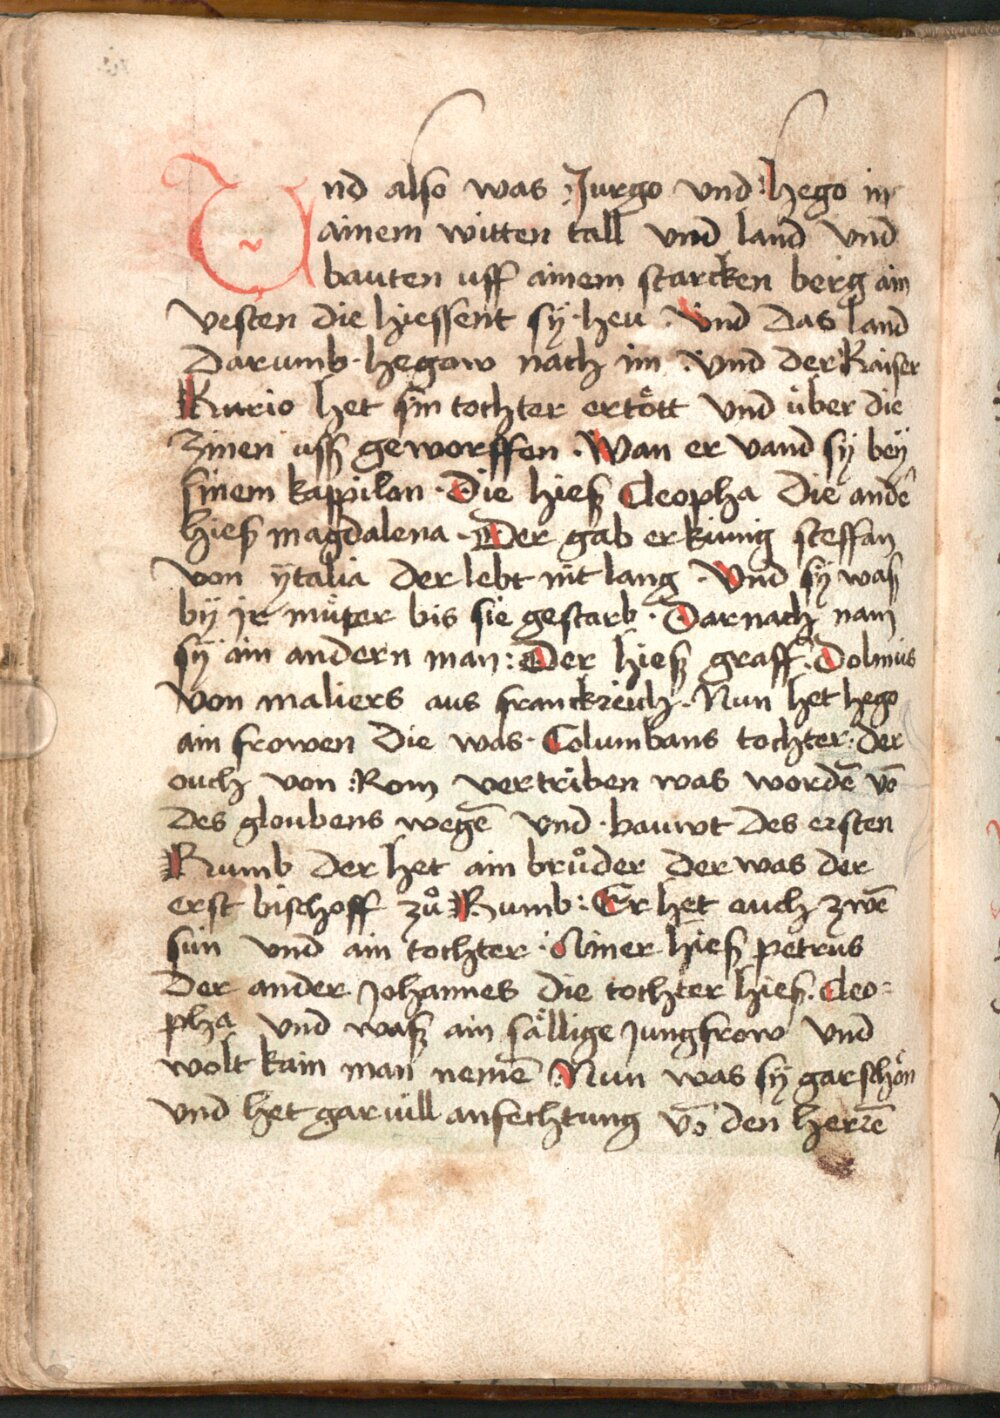 Und also was Jurgo vnd hego in
ainem witten tall vnd land vnd
bauten uff ainem starcken berg ain
vesten die hiessent sÿ · heu · Vnd das land
darumb · hegow nach im · Vnd der Kaiser
Kurio het sin tochter ertött vnd über die
zinen uss geworffen · Wan er vand sÿ beÿ
sinem kappilan · Die hiess Cleopha die ande
hiess magdalena · Der gab er kiunig steffan
von ÿtalia der lebt nit lang · Vnd sÿ wass
bÿ ir müter bis sie gestarb · Darnach nam
sÿ ain andern man : Der hiess graff · Dolmus
von maliers aus franckreich · Nun het hego
ain frowen die was · Columbans tochter : der
ouch von : Rom vertriben was wordē vō
des gloubens wegē vnd · bauwt des ersten
Rumb der het ain brůder der was der
erst bischoff zů Rumb : Er het ouch zwē
sün vnd ain tochter · Ainer hiess petrus
der ander Johannes die tochter hiess · Cleo=
pha vnd wass ain sällige Jungfrow vnd
wolt kain man nemē Nun was sÿ gar schön
vnd het gar uill anfechtung vō den herrē